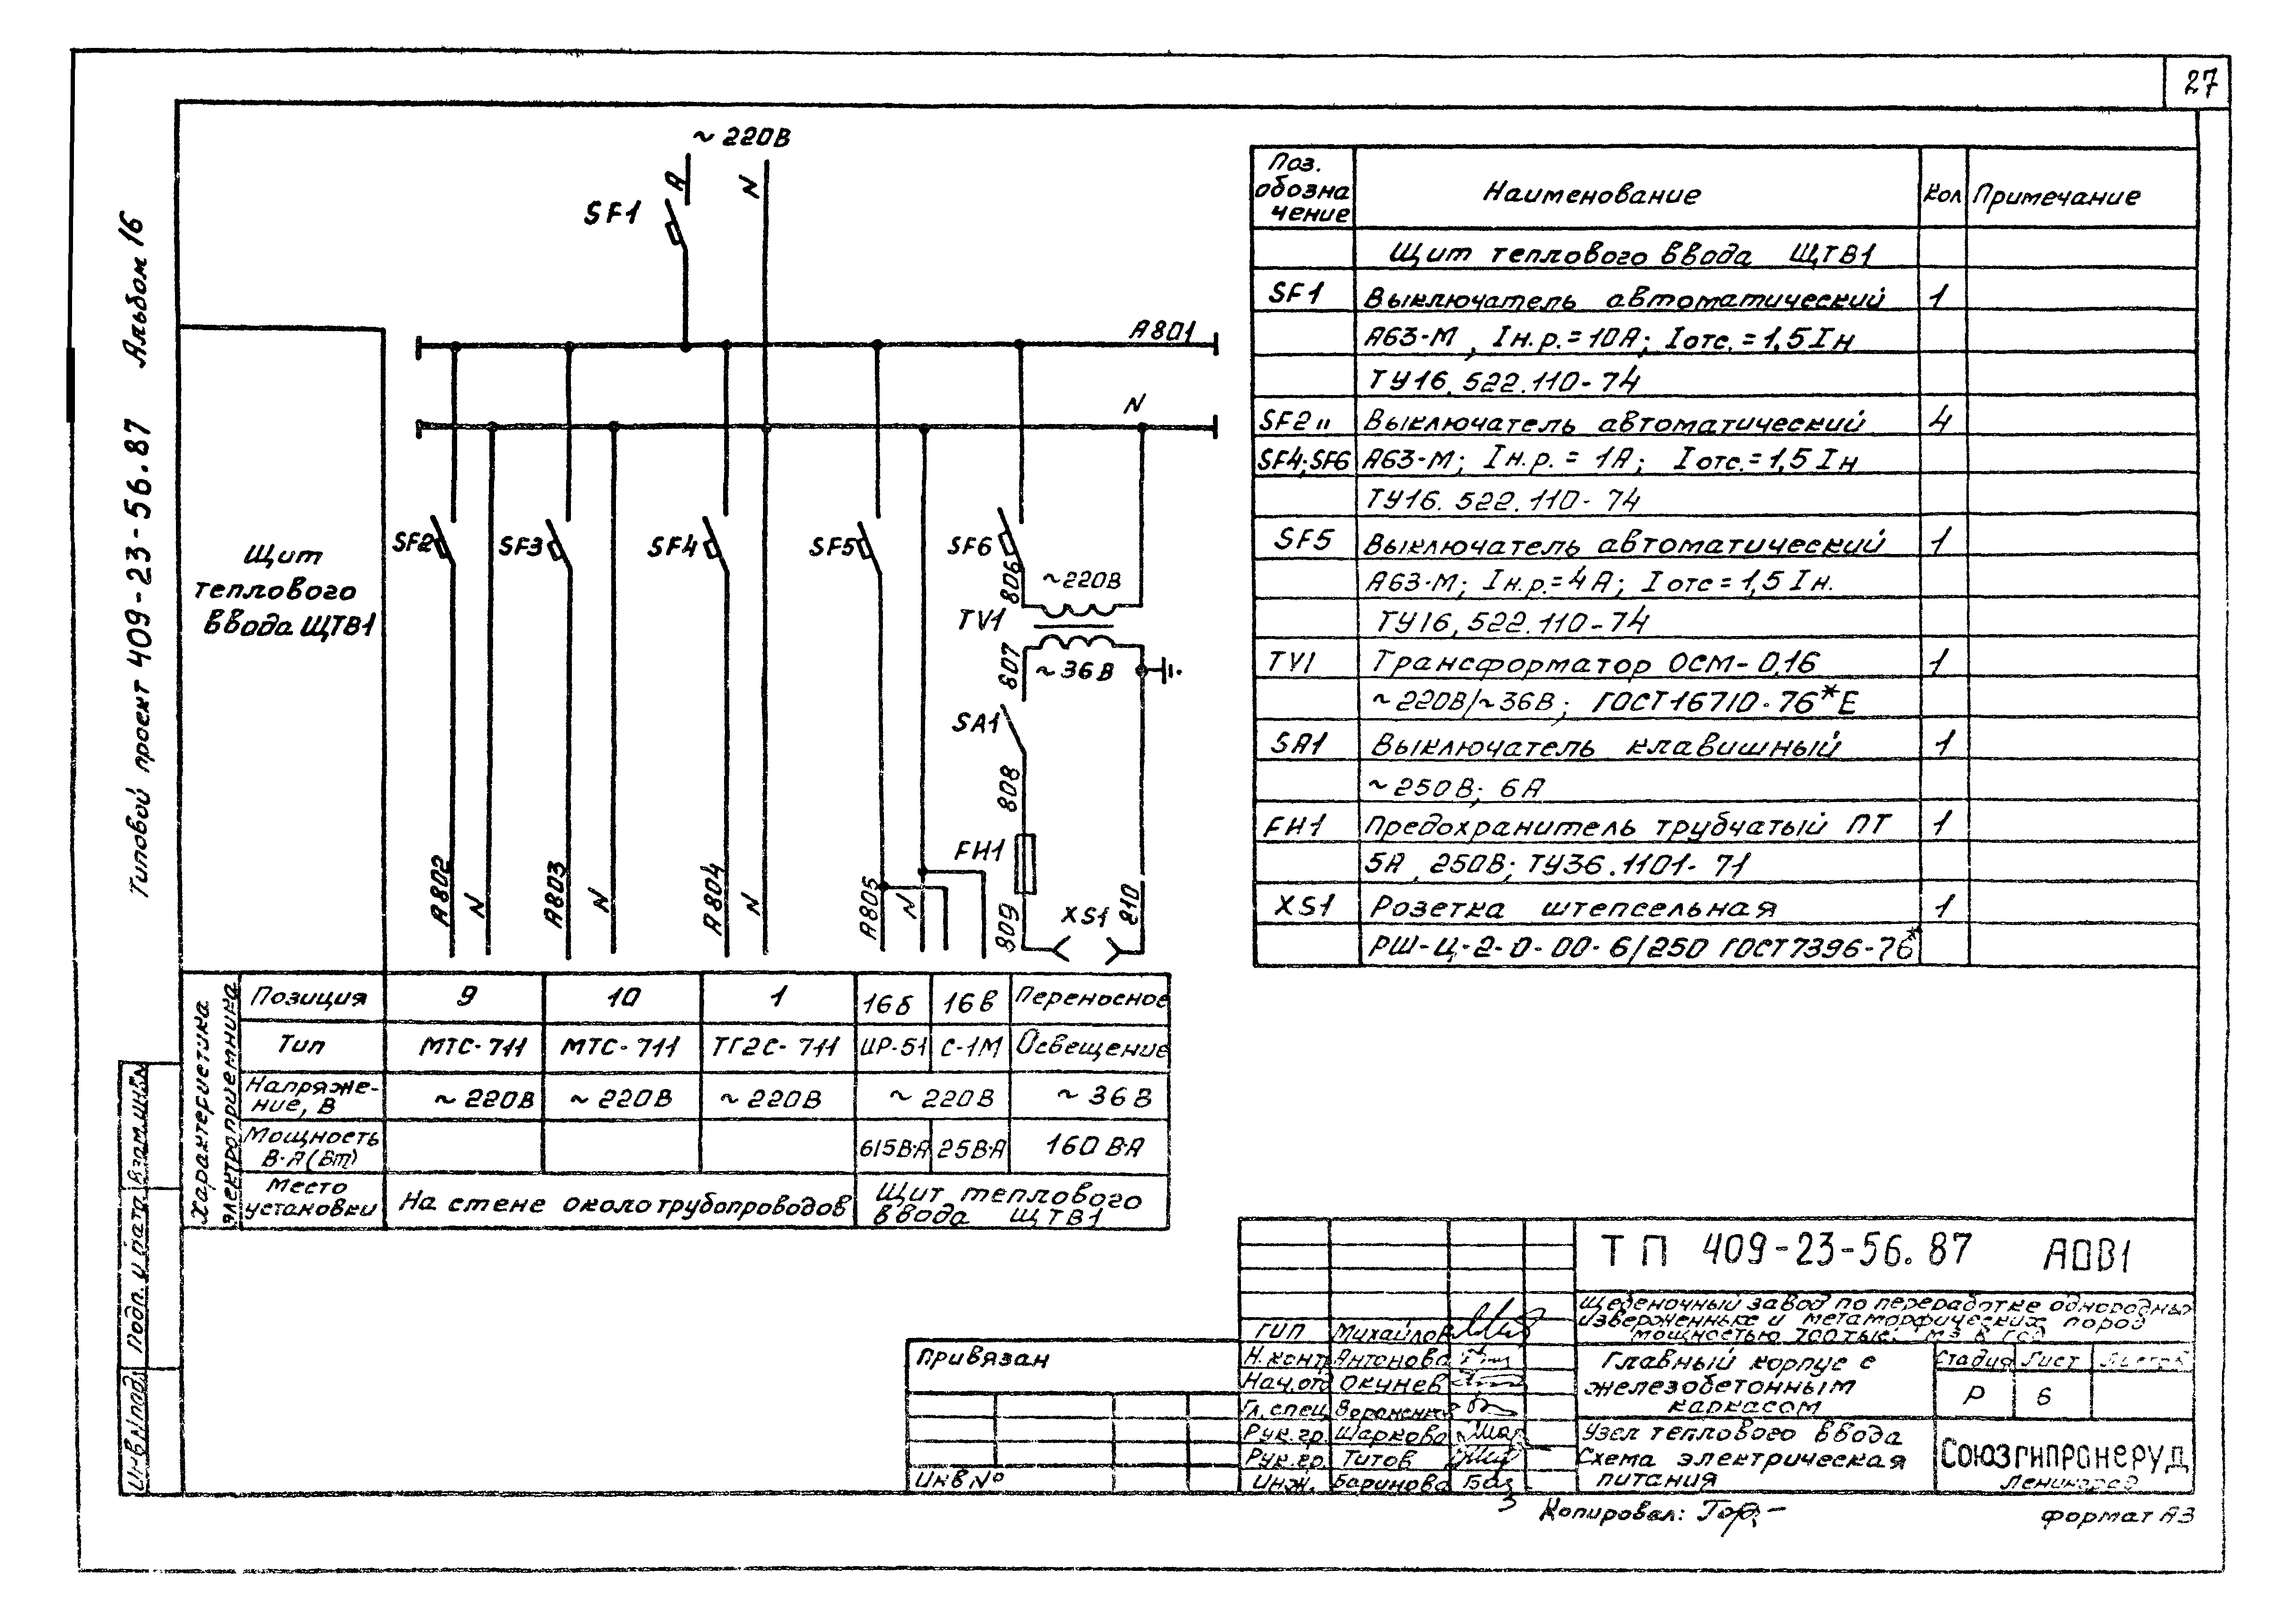 27
Типовой проект 409-23-56.87 Альбом 16
~ 220В
A
N
SF1
A801
N
SF2
SF3
SF4
SF5
SF6
806
~220В
TV1
807
~36В
SA1
808
FH1
809
XS1
810
A802
N
A803
N
A804
N
A805
N
Щит
теплового
ввода ЩТВ1
Характеристика
электроприемника
Позиция 9 10 1 16б 16в Переносное
Тип МТС-711 МТС-711 ТГ2С-711 ЦР-51 С-1М Освещение
Напряже-
ние, В ~220В ~220В ~220В ~220В ~36В
Мощность
В·А(Вт) 615В·А 25В·А 160 В·А
Место
установки На стене около трубопроводов Щит теплового
ввода ЩТВ1
Поз.
обозна
чение Наименование Кол Примечание
Щит теплового ввода ЩТВ1
SF1 Выключатель автоматический 1
А63-М, Iн.р.=10А; Iотс.=1,5Iн
ТУ16.522.110-74
SF2,, Выключатель автоматический 4
SF4;SF6 А63-М; Iн.р.= 1А; Iотс.=1,5Iн
ТУ16.522.110-74
SF5 Выключатель автоматический 1
А63-М; Iн.р.=4А; Iотс=1,5Iн.
ТУ16.522.110-74
TV1 Трансформатор ОСМ-0,16 1
~220В/~36В; ГОСТ16710-76*Е
SA1 Выключатель клавишный 1
~250В; 6А
FH1 Предохранитель трубчатый ПТ 1
5А, 250В; ТУ36.1101-71
XS1 Розетка штепсельная 1
РШ-Ц-2-0-00-6/250 ГОСТ7396-76*
Взам.инв.№
Подп. и дата
Инв№подл
Привязан
Инв№
ТП 409-23-56.87 АОВ1
Щебеночный завод по переработке однородных
изверженных и метаморфических пород
мощностью 700тыс. м3 в год
ГИП Михайлов
Н.контр Антонова
Нач.отд Окунев
Гл.спец
Рук.гр. Шаркова
Рук.гр. Титов
Инж. Баринова
Главный корпус с
железобетонным
каркасом
Стадия Лист Листов
Р 6
Узел теплового ввода
Схема электрическая
питания
Союзгипронеруд
Ленинград
Копировал:
формат А3